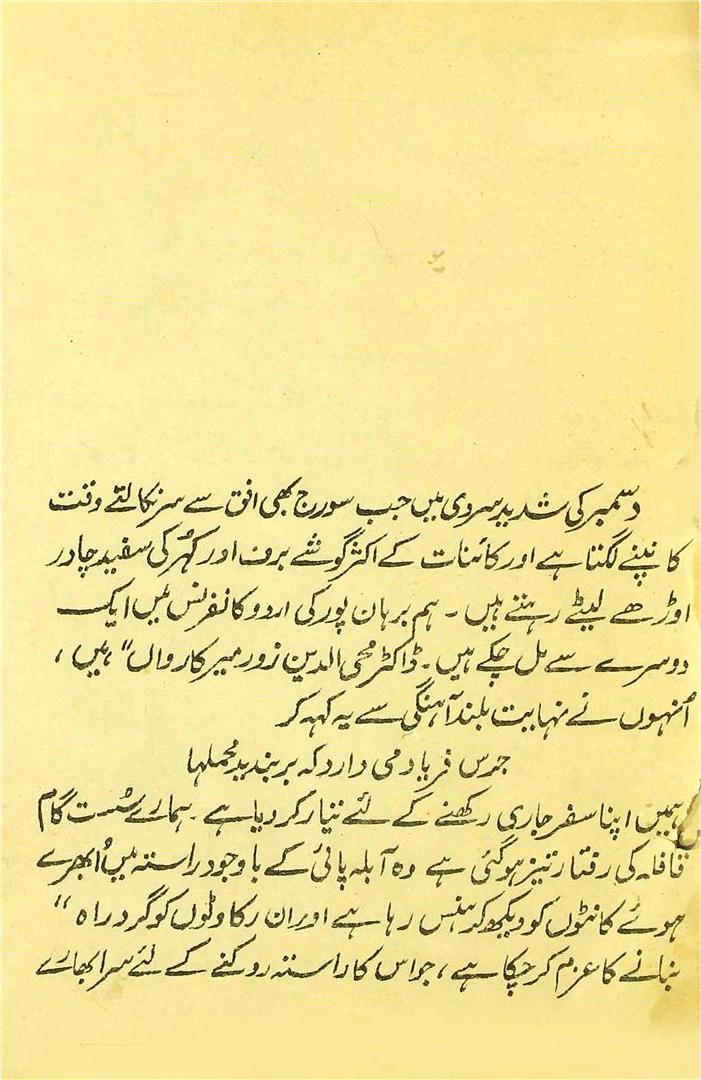 دسمبر کی شدید سردی میں جب سورج بھی افق سے سر نکالتے وقت
کانپنے لگتا ہے اور کائنات کے اکثر گوشے برف اور کہُر کی سفید چادر
اوڑھے لیٹے رہتے ہیں ۔ ہم برہان پور کی اردو کانفرنس میں ایک
دوسرے سے مل چکے ہیں ۔ ڈاکٹر محی الدین زور میر کارواں" ہیں ،
اُنہوں نے نہایت بلند آہنگی سے یہ کہہ کر
جرس فریاد می دارد کہ بر بندید محملہا
ہمیں اپنا سفر جاری رکھنے کے لئے تیار کر دیا ہے ۔ ہمارے سُست گام
قافلہ کی رفتار تیز ہو گئی ہے وہ آبلہ پائی کے باوجود راستہ میں اُبھرے
ہوئے کانٹوں کو دیکھ کر ہنس رہا ہے اور ان رکاوٹوں کو گرد راہ "
بنانے کا عزم کر چکا ہے ، جو اس کا راستہ روکنے کے لئے سر ابھارے